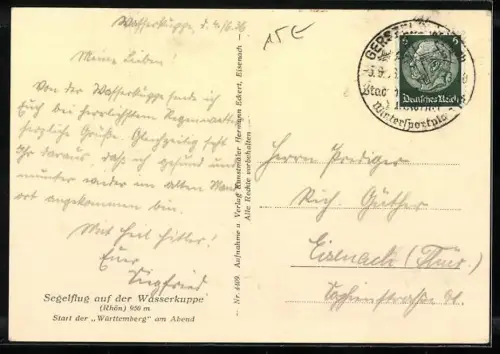 Wasserkuppe, d. 4./6.36
Meine Lieben!
Von der Wasserkuppe sende ich
Euch bei herrlichstem Regenwetter
herzliche Grüße. Gleichzeitig seht
Ihr daraus, daß ich gesund und
munter wieder im alten
ort angekommen bin.
Mit Heil Hitler!
Euer
Siegfried
Segelflug auf der Wasserkuppe
(Rhön) 950 m
Start der „Württemberg" am Abend
Nr. 4409. Aufnahme u. Verlag Kunstmaler Hermann Eckert, Eisenach
Alle Rechte vorbehalten
15€
GERSFELD
Wintersportplatz
6 6
Deutsches Reich
Herrn Prediger
Rich. Güther
Eisenach (Thür.)